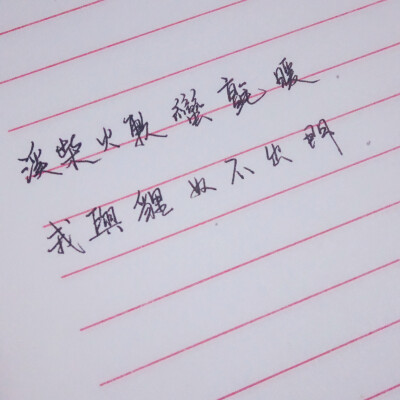 溪柴火軟蠻氈暖
我與貍奴不出門